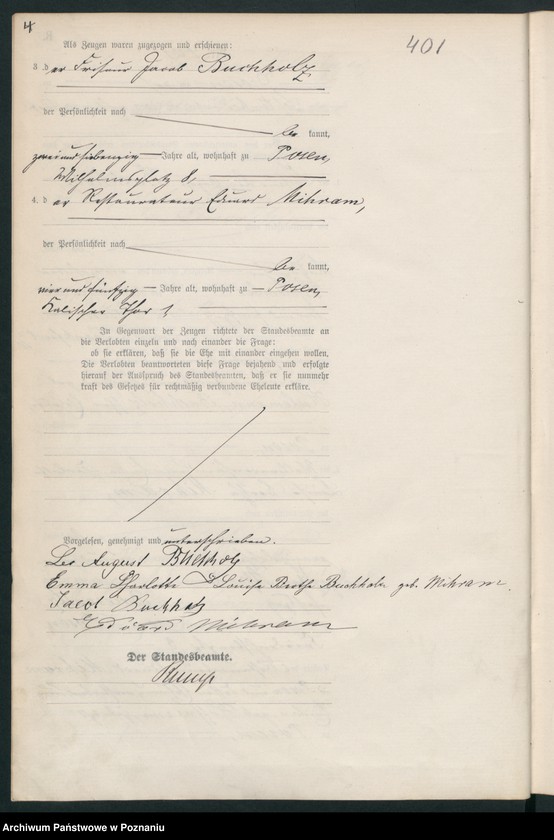 4
401
Als Zeugen waren zugezogen und erschienen:
3. der Friseur Jacob Buchholz
der Persönlichkeit nach
be kannt,
zweiundsiebenzig Jahre alt, wohnhaft zu Posen,
Wilhelmsplatz 8,
4. der Restaurateur Eduard Mihram,
der Persönlichkeit nach
be kannt,
vierundfünfzig Jahre alt, wohnhaft zu Posen,
Kalischer Thor 1
In Gegenwart der Zeugen richtete der Standesbeamte an
die Verlobten einzeln und nach einander die Frage:
ob sie erklären, daß sie die Ehe mit einander eingehen wollen.
Die Verlobten beantworteten diese Frage bejahend und erfolgte
hierauf der Ausspruch des Standesbeamten, daß er sie nunmehr
kraft des Gesetzes für rechtmäßig verbundene Eheleute erkläre.
Vorgelesen, genehmigt und unterschrieben.
Leo August Buchholz
Emma Charlotte Louise Berthe Buchholz geb. Mihram.
Jacob Buchholz
Eduard Mihram
Der Standesbeamte.
Archiwum Państwowe w Poznaniu